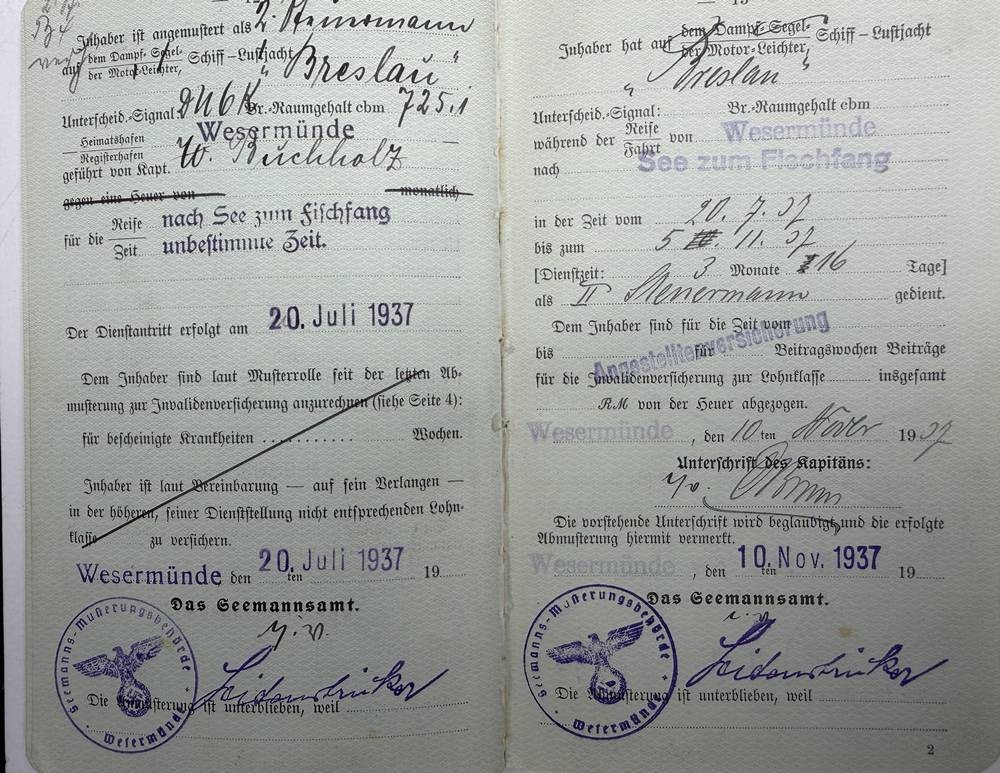 Inhaber ist angemustert als 2. Steuermann
auf dem Dampf-Segel- Schiff – Lustjacht „Breslau“
der Motor-Leichter,
Unterscheid.-Signal: Br.-Raumgehalt cbm 725.1
Heimatshafen Wesermünde
Registerhafen
geführt von Kapt. W. Buchholz
gegen eine Heuer von monatlich
für die Reise nach See zum Fischfang
Zeit unbestimmte Zeit.
Der Dienstantritt erfolgt am 20. Juli 1937
Dem Inhaber sind laut Musterrolle seit der letzten Ab-
musterung zur Invalidenversicherung anzurechnen (siehe Seite 4):
für bescheinigte Krankheiten .......... Wochen.
Inhaber ist laut Vereinbarung — auf sein Verlangen —
in der höheren, seiner Dienststellung nicht entsprechenden Lohn-
klasse zu versichern.
Wesermünde den 20. Juli 1937 ten 19
Das Seemannsamt.
Die Anmusterung ist unterblieben, weil
Seemanns-Musterungsbehörde
Wesermünde
Inhaber hat auf dem Dampf-Segel- Schiff – Lustjacht
der Motor-Leichter,
„Breslau“
Unterscheid.-Signal: Br.-Raumgehalt cbm
während der Reise von Wesermünde
Fahrt
nach See zum Fischfang
in der Zeit vom 20. 7. 37
bis zum 5 11. 37
[Dienstzeit: 3 Monate 16 Tage]
als II Steuermann gedient.
Dem Inhaber sind für die Zeit vom
bis für Beitragswochen Beiträge
Angestelltenversicherung
für die Invalidenversicherung zur Lohnklasse insgesamt
RM von der Heuer abgezogen.
Wesermünde, den 10 ten Nover 1937
Unterschrift des Kapitäns:
Die vorstehende Unterschrift wird beglaubigt und die erfolgte
Abmusterung hiermit vermerkt.
Wesermünde, den 10. Nov. 1937 ten 19
Das Seemannsamt.
Die Abmusterung ist unterblieben, weil
Seemanns-Musterungsbehörde
Wesermünde
2